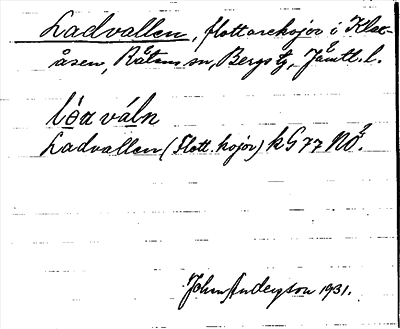 Ladvallen, flottarekojor i Klax-
åsen, Rätans sn, Bergs tg, Jämtl. l.
lo̱a vá̱ln
Ladvallen (Flott. kojor) k G 77 NÖ.
John Anderson 1931.